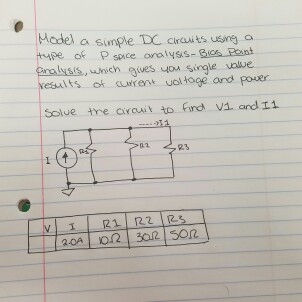 Model a simple DC circuits using a
type of Pspice analysis- Bias Point
analysis, which gives you single value
results of current voltage and power.
Solve the circuit to find V1 and I1
----→I1
I R1 R2 R3
V I R1 R2 R3
2.0A 10Ω 30Ω 50Ω